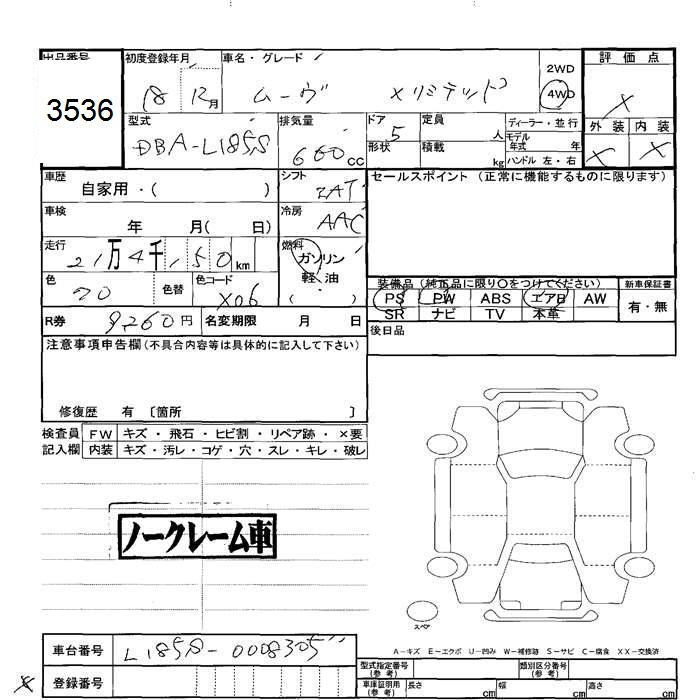 出品番号 初度登録年月 車名・グレード 評価点
3536 18 12月 ムーヴ Xリミテッド 2WD 4WD X
外装 内装
X X
型式 排気量 ドア 定員 ディーラー・並行
DBA-L185S 660cc 5 人 モデル年式 年
形状 積載 kg ハンドル 左・右
車歴 シフト セールスポイント (正常に機能するものに限ります)
自家用・( ) 2AT
車検 冷房
年 月( 日) AAC
走行 燃料
21万4千150km ガソリン
軽油
( )
色 色替 色コード 装備品(純正品に限り〇をつけてください) 新車保証書
クロ X06 PS PW ABS エアB AW 有・無
SR ナビ TV 本革
R券 9260円 名変期限 月 日 後日品
注意事項申告欄(不具合内容等は具体的に記入して下さい)
修復歴 有 〔箇所 〕
検査員 FW キズ・飛石・ヒビ割・リペア跡・×要
記入欄 内装 キズ・汚レ・コゲ・穴・スレ・キレ・破レ
ノークレーム車
スペア
A-キズ E-エクボ U-凹み W-補修跡 S-サビ C-腐食 XX-交換済
車台番号 L185S-0008305
登録番号
型式指定番号(参考) 類別区分番号(参考)
車庫証明用(参考) 長さ cm 幅 cm 高さ cm